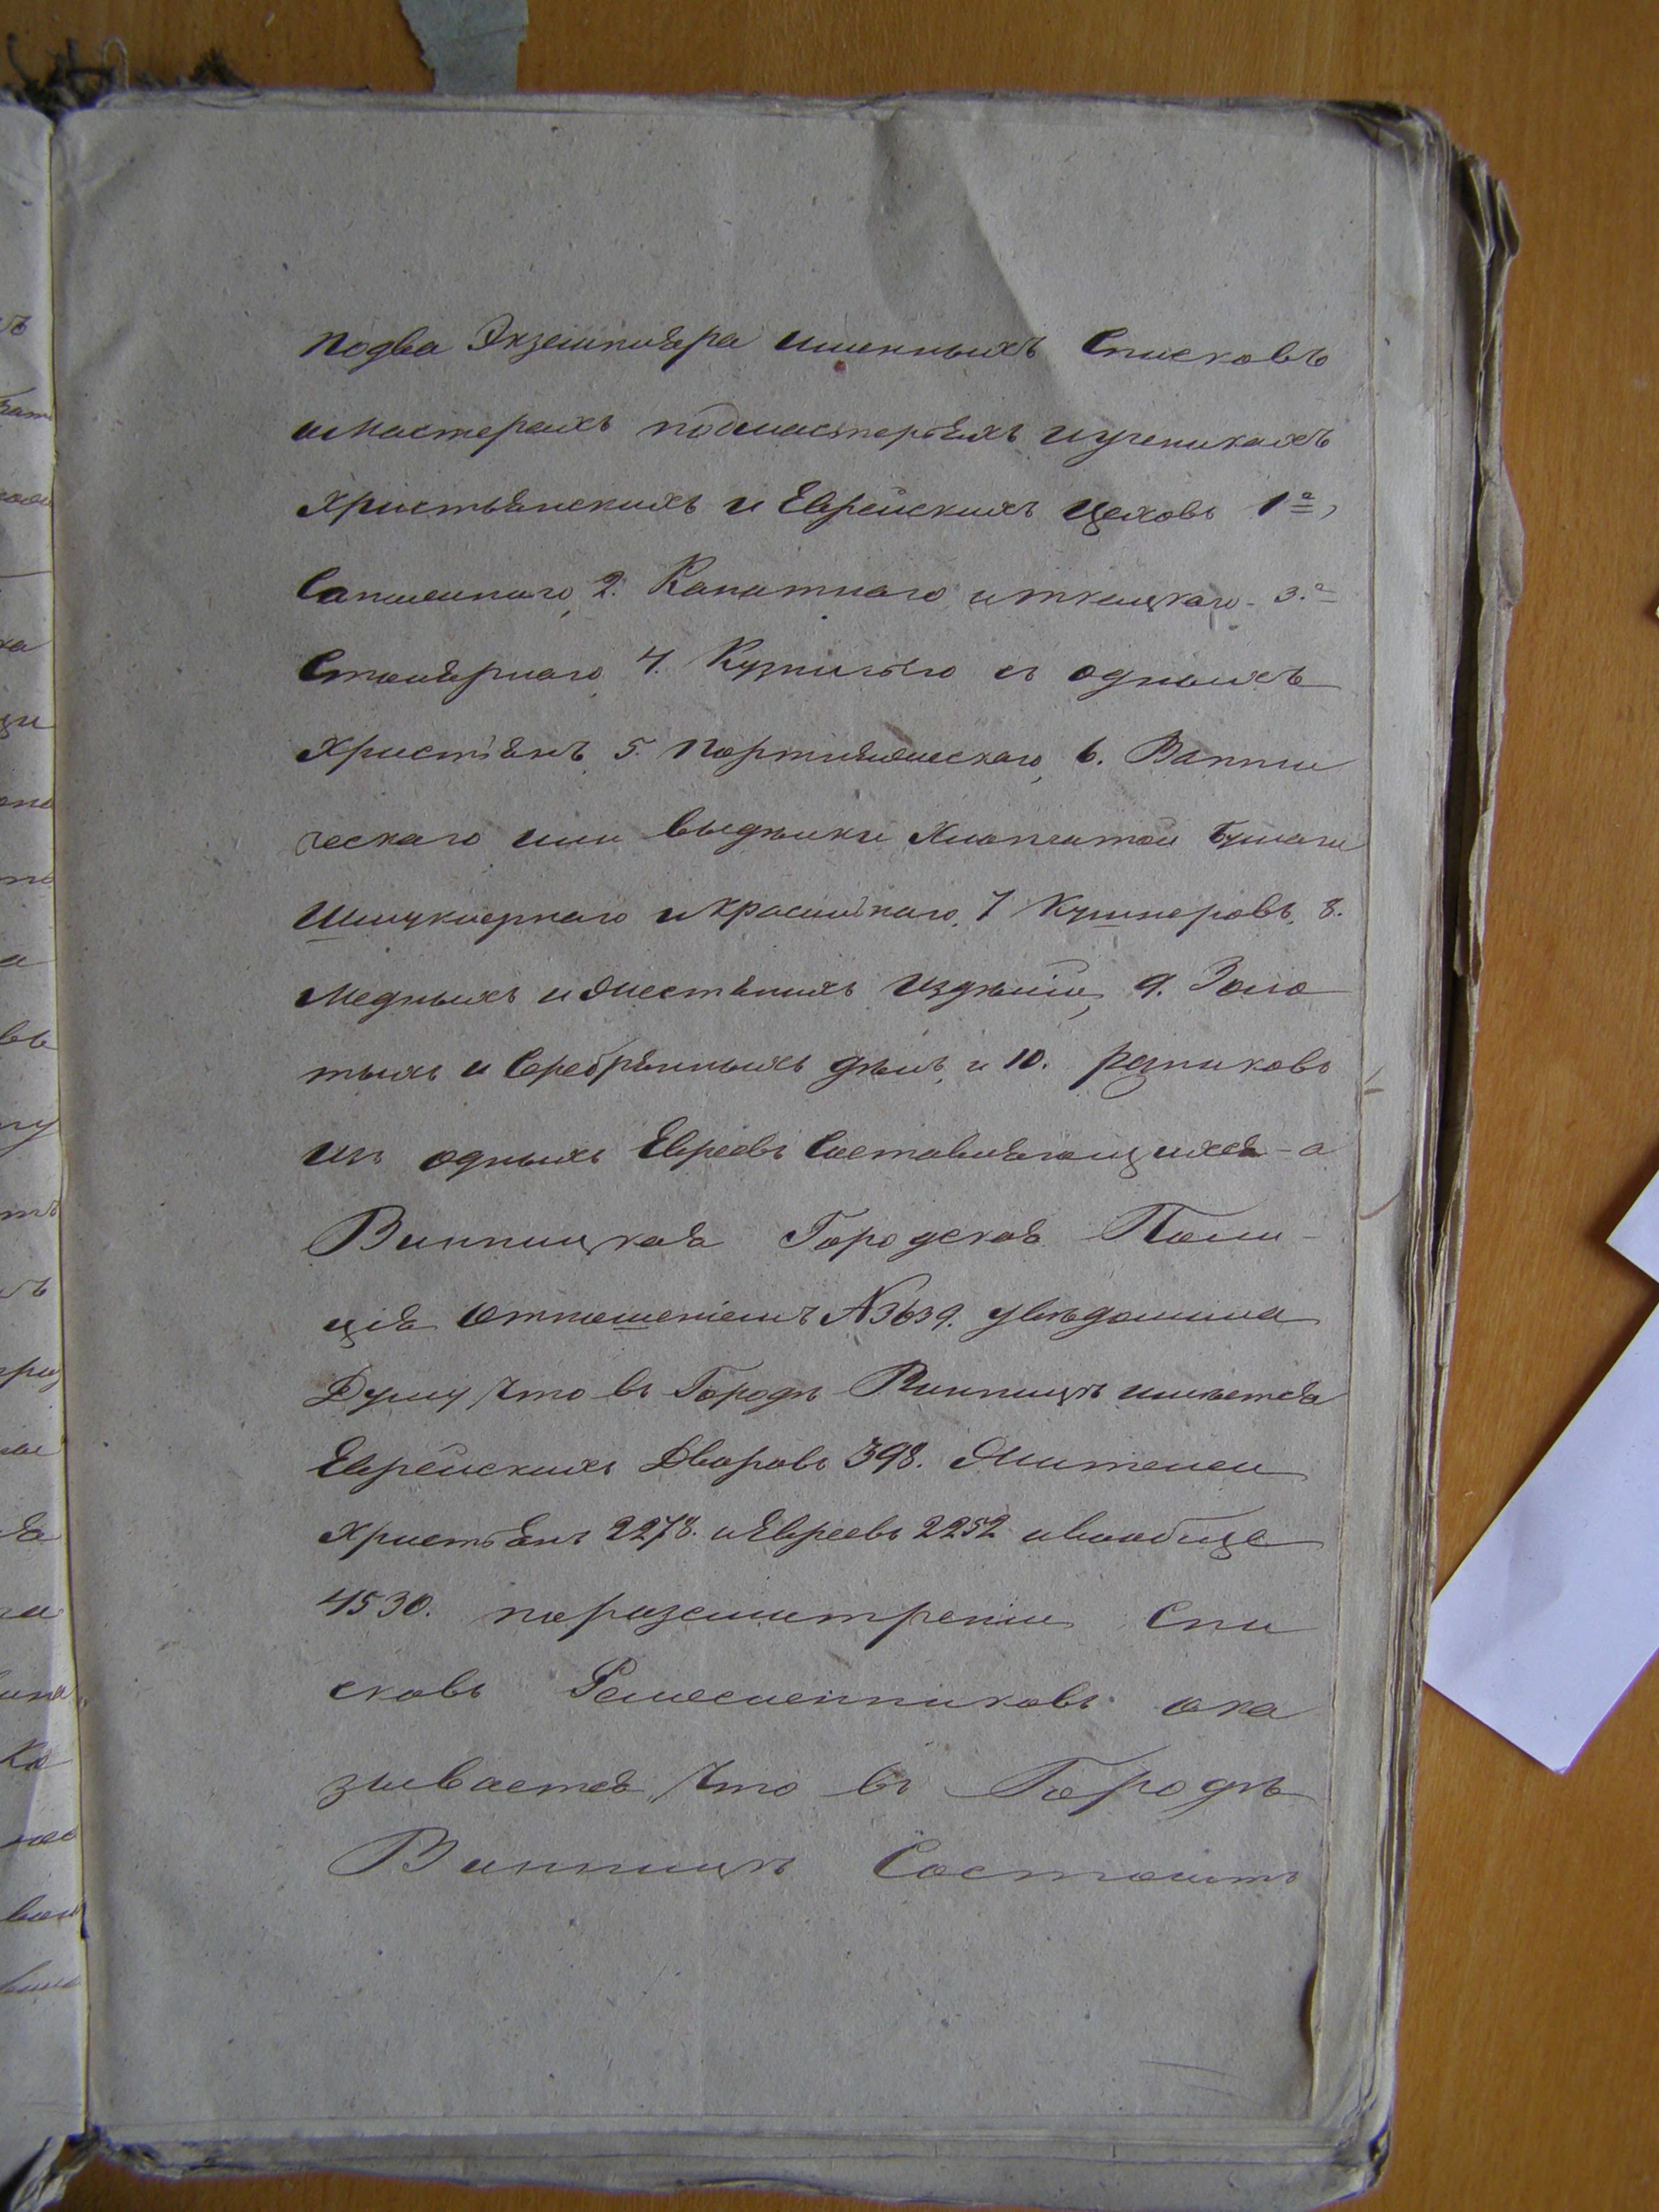 подва Экземпляра именныхъ Списковъ
имастерахъ подмастерьяхъ иученикахъ
Христьянскихъ и Еврейскихъ Цеховъ 1е,
Сапожннаго, 2. Канатнаго иткацкаго 3.е
Столярнаго 4. Кузнечьго изъ однихъ
Христіянъ 5. Портняжескаго, 6. Ватни
ческаго или выделки Хлопчатой бумаги
Шмуклернаго икрасильнаго, 7 Кушнеровъ, 8.
Медныхъ ижестяныхъ Изделій, 9. Золо
тыхъ и Серебрянныхъ делъ, и 10. резниковъ
изъ однихъ Евреевъ Составляющихся - а
Винницкая Городская Поли-
ція Отношеніемъ N3639. уведомила
Думу, Что въ Городѣ Винницѣ имѣется
Еврейскихъ Дворовъ 398. Жителей
Христьянъ 2278. иЕвреевъ 2252 ивообще
4530. поразсмотреніи Спи
сковъ Ремесленниковъ ока
зывается, Что въ Городѣ
Винницѣ Состоитъ